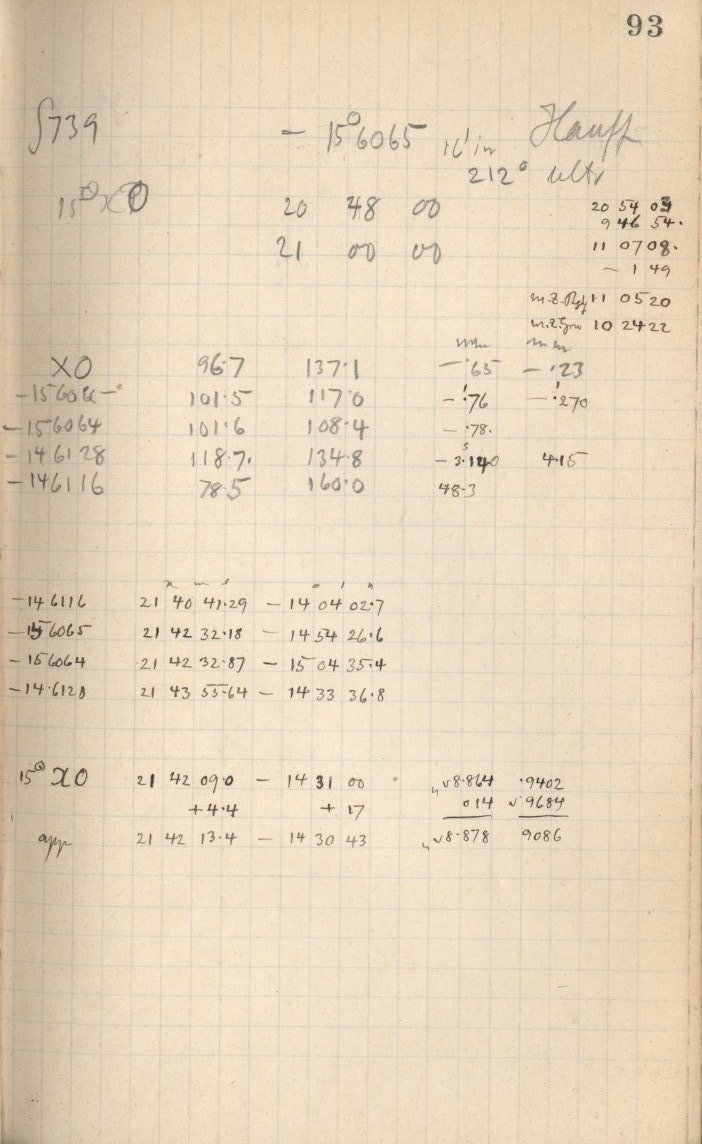 93
739 - 15°6065 16' in Hauff
212° Ultr
15 XO 20 48 00 20 54 03
9 46 54.
21 00 00 11 07 08.
- 1 49
11 05 20
10 24 22
XO 96.7 137.1 - .65 - .23
101.5 117.0 - .76 - .270
-156064 101.6 108.4 - .78.
-146128 118.7. 134.8 - 3.140 4.15
-146116 78.5 160.0 48.3
h m s ° ' "
-146116 21 40 41.29 - 14 04 02.7
-156065 21 42 32.18 - 14 54 26.6
-156064 21 42 32.87 - 15 04 35.4
-146128 21 43 55.64 - 14 33 36.8
15 XO 21 42 09.0 - 14 31 00 8.864 .9402
+4.4 + 17 014 9684
app 21 42 13.4 - 14 30 43 8.878 9086